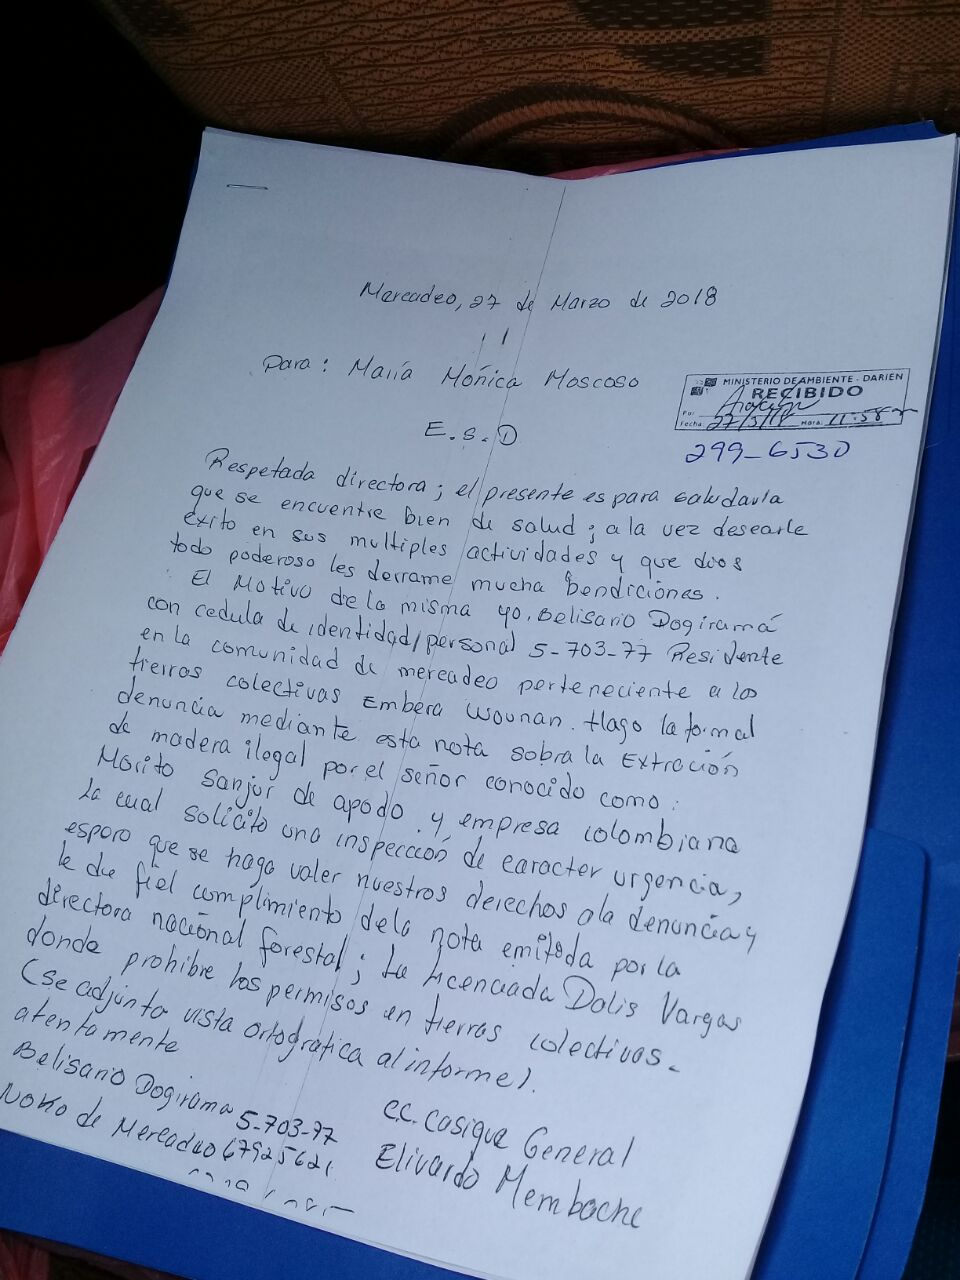 Mercadeo, 27 de Marzo de 2018
Para: María Móñica Moscoso
MINISTERIO DE AMBIENTE - DARIEN
RECIBIDO
Por:
Fecha 27/3/18 Hora: 11:58
299-6530
E.S.D
Respetada directora; el presente es para saludarla
que se encuentre bien de salud; a la vez desearle
éxito en sus multiples actividades y que dios
todo poderoso les derrame mucha bendiciones.
El Motivo de la misma yo, Belisario Dogiramá
con cedula de identidad personal 5-703-77 Residente
en la comunidad de mercadeo perteneciente a los
tierras colectivas Embera wounan. Hago la formal
denuncia mediante esta nota sobra la Extración
de madera ilegal por el señor conocido como:
Morito Sanjur de apodo. y empresa colombiana
La cual solicito una inspección de caracter urgencia,
espero que se haga valer nuestros derechos a la denuncia y
le die fiel cumplimiento de la nota emitida por la
directora nacional forestal; La Licenciada Dalis Vargas
donde prohibre los permisos en tierras colectivas.
(se adjunta vista ortografica al informe).
atentamente
Belisario Dogirama 5-703-77
Noko de Mercadeo 67925621
c.c. Casique General
Elivardo Membache